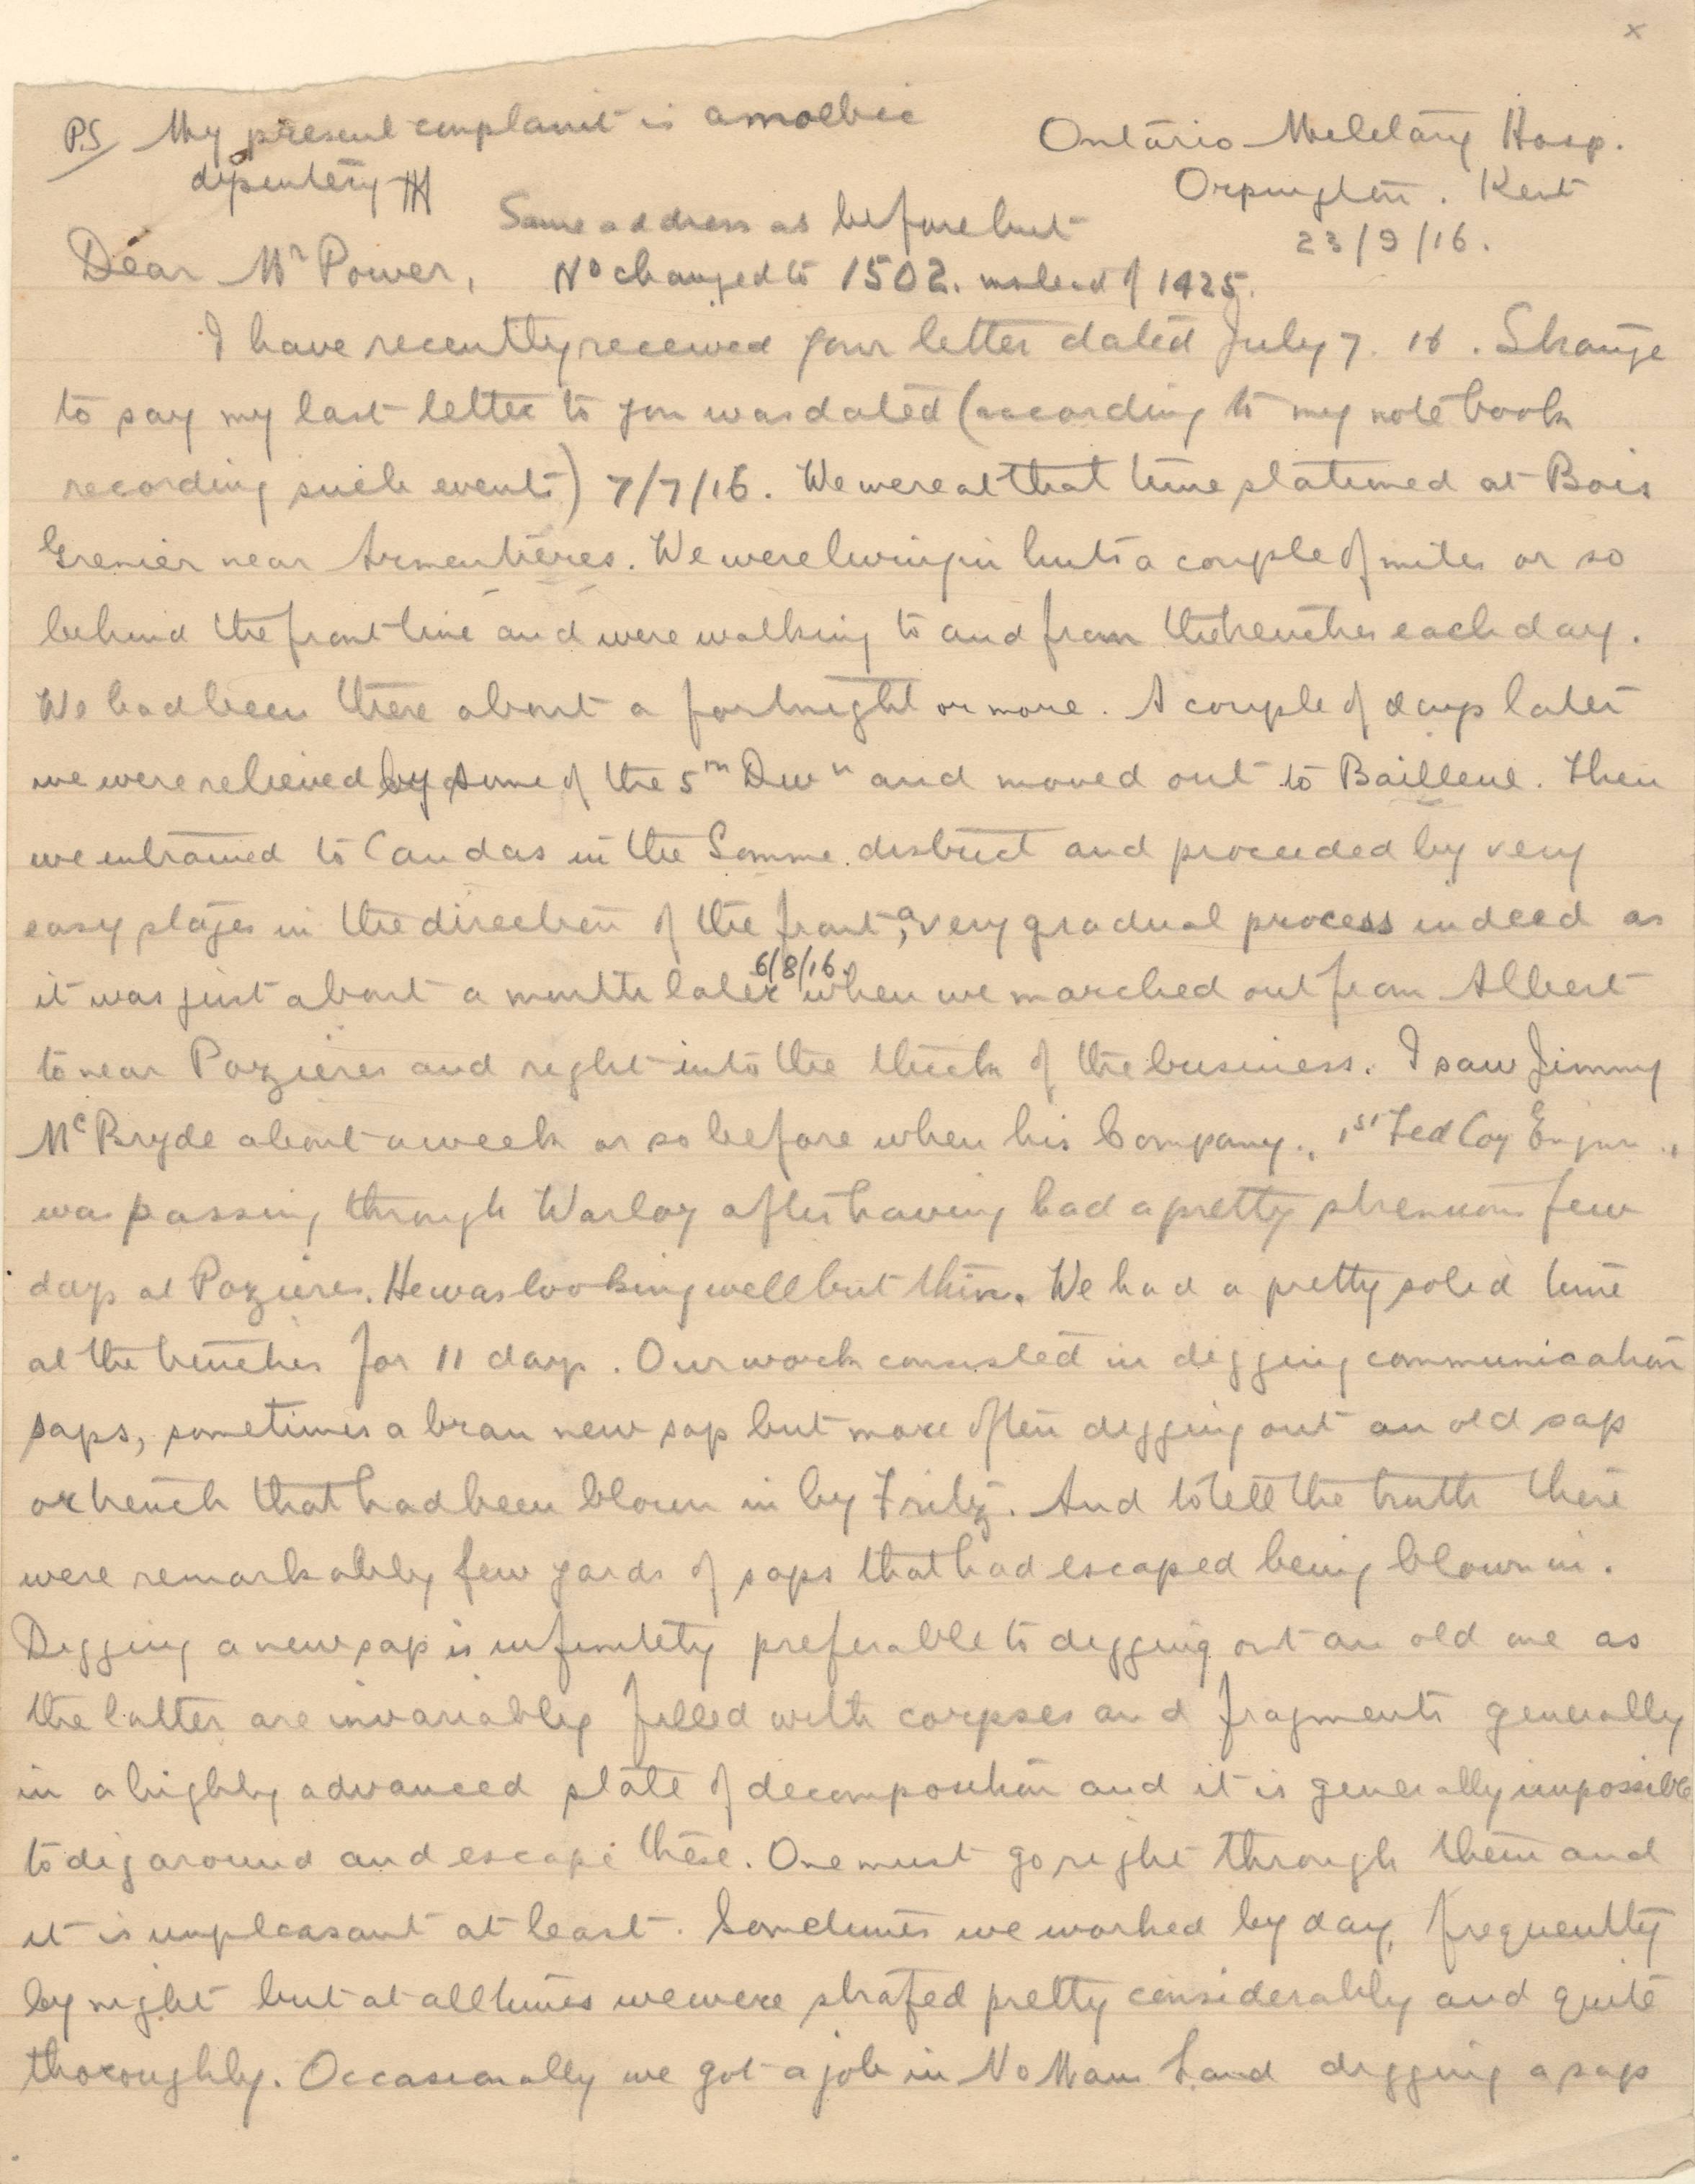 P.S/ My present complaint is amoebic
dysentery
Ontario Military Hosp.
Orpington. Kent
23/9/16.
Same address as before but
No changed to 1502. instead of 1425.
Dear Mr Power,
I have recently received your letter dated July 7. 16. Strange
to say my last letter to you was dated (according to my note book
recording such events) 7/7/16. We were at that time stationed at Bois
Grenier near Armentieres. We were living in huts a couple of miles or so
behind the front line and were walking to and from the trenches each day.
We had been there about a fortnight or more. A couple of days later
we were relieved by some of the 5th Divn and moved out to Bailleul. Then
we entrained to Candas in the Somme district and proceeded by very
easy stages in the direction of the front, a very gradual process indeed as
it was just about a month later 6/8/16. when we marched out from Albert
to near Pozieres and right into the thick of the business. I saw Jimmy
McBryde about a week or so before when his Company, 1st Fed Coy Engnr.,
was passing through Warloy after having had a pretty strenuous few
days at Pozieres. He was looking well but thin. We had a pretty solid time
at the trenches for 11 days. Our work consisted in digging communication
saps, sometimes a bran new sap but more often digging out an old sap
or trench that had been blown in by Fritz. And to tell the truth there
were remarkably few yards of saps that had escaped being blown in.
Digging a new sap is infinitely preferable to digging out an old one as
the latter are invariably filled with corpses and fragments generally
in a highly advanced state of decomposition and it is generally impossible
to dig around and escape these. One must go right through them and
it is unpleasant at least. Sometimes we worked by day, frequently
by night but at all times we were strafed pretty considerably and quite
thoroughly. Occasionally we got a job in No Mans Land digging a sap